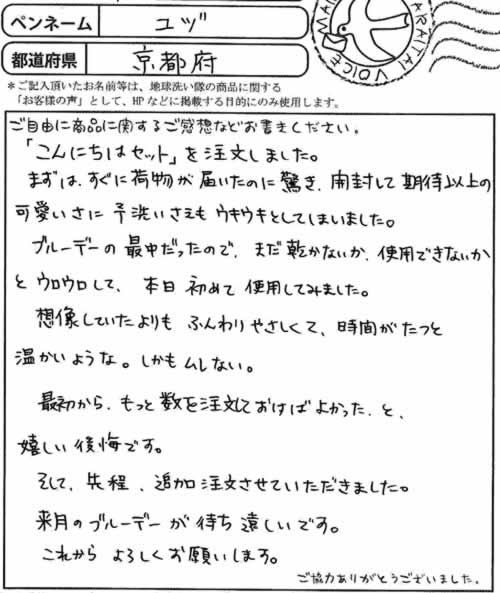 ペンネーム ユヅ
都道府県 京都府
MAI ARAITAI VOICE
*ご記入頂いたお名前等は、地球洗い隊の商品に関する
「お客様の声」として、HPなどに掲載する目的にのみ使用します。
ご自由に商品に関するご感想などお書きください。
「こんにちはセット」を注文しました。
まずは、すぐに荷物が届いたのに驚き、開封して期待以上の
可愛いさに予洗いさえもウキウキとしてしまいました。
ブルーデーの最中だったので、まだ乾かないか、使用できないか
とウロウロして、本日初めて使用してみました。
想像していたよりもふんわりやさしくて、時間がたつと
温かいような。しかもムレない。
最初から、もっと数を注文しておけばよかった、と、
嬉しい後悔です。
そして、先程、追加注文させていただきました。
来月のブルーデーが待ち遠しいです。
これからよろしくお願いします。
ご協力ありがとうございました。